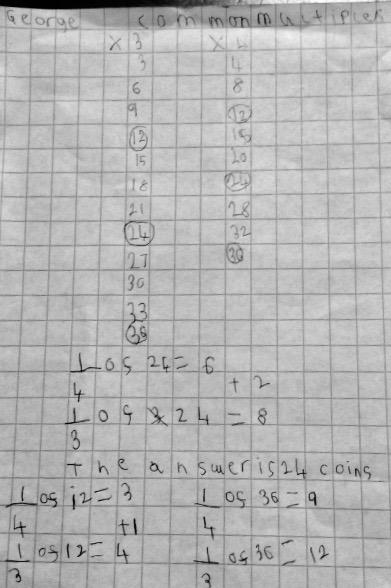 George common multiples
x 3 x 4
3 4
6 8
9 12
12 16
15 20
18 24
21 28
24 32
27 36
30
33
36
1/4 of 24 = 6
+ 2
1/3 of 24 = 8
The answer is 24 coins
1/4 of 12 = 3 1/4 of 36 = 9
+1
1/3 of 12 = 4 1/3 of 36 = 12